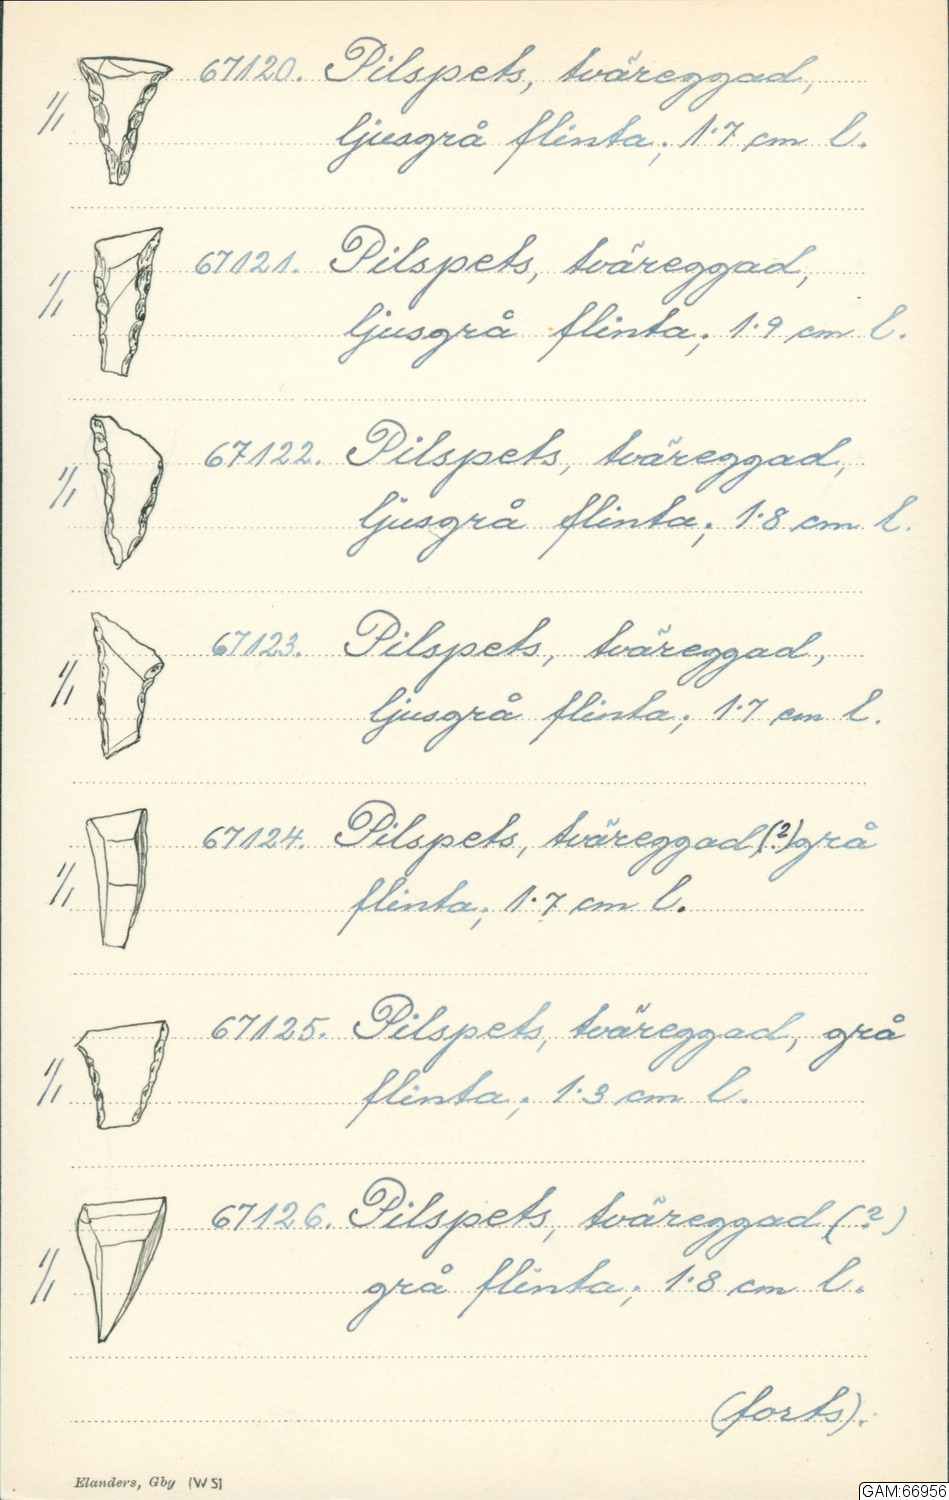 1/1 67120. Pilspets, tväreggad,
ljusgrå flinta; 1.7 cm l.
1/1 67121. Pilspets, tväreggad,
ljusgrå flinta; 1.9 cm l.
1/1 67122. Pilspets, tväreggad,
ljusgrå flinta; 1.8 cm l.
1/1 67123. Pilspets, tväreggad,
ljusgrå flinta; 1.7 cm l.
1/1 67124. Pilspets, tväreggad,(?) grå
flinta; 1.7 cm l.
1/1 67125. Pilspets, tväreggad, grå
flinta; 1.3 cm l.
1/1 67126. Pilspets, tväreggad (?)
grå flinta; 1.8 cm l.
(forts).
Elanders, Gby (W S)
GAM:66956